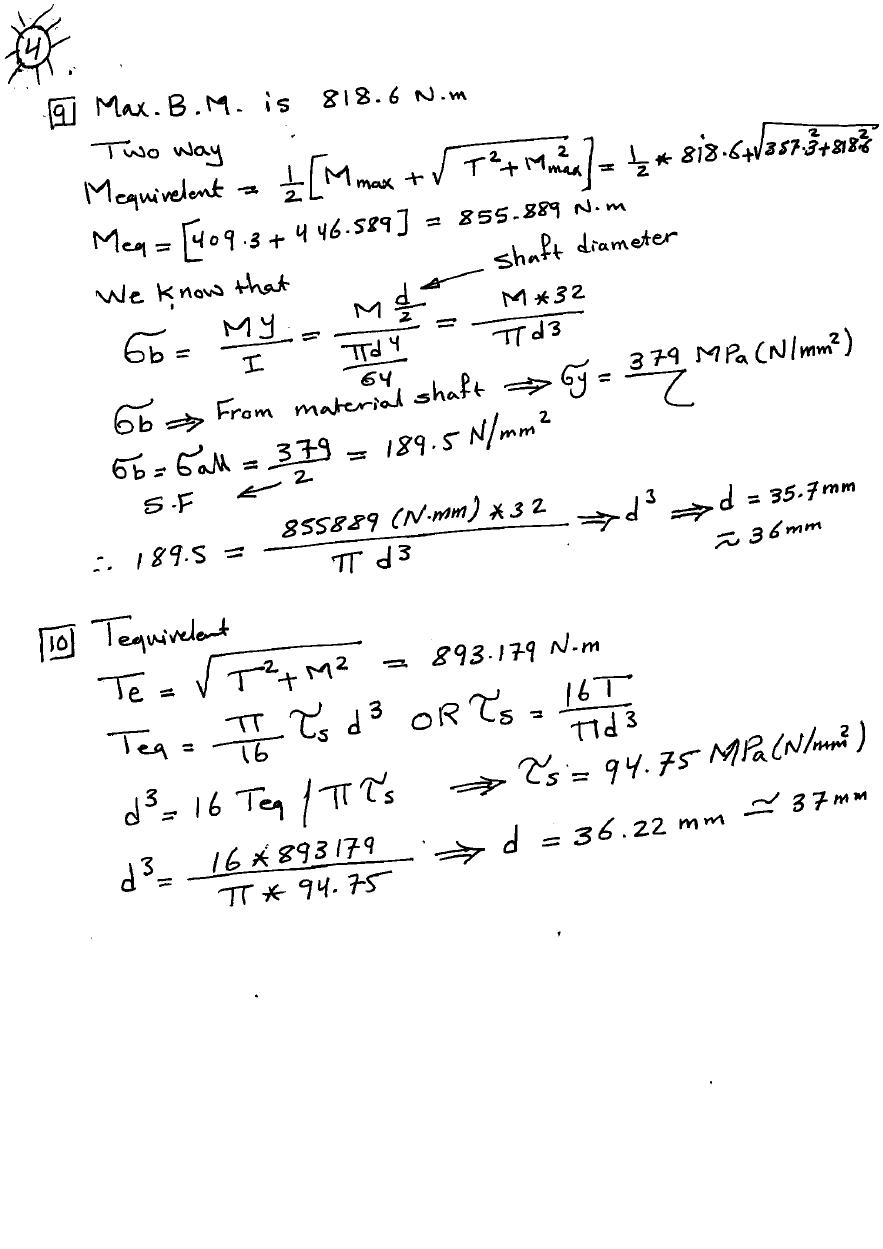 4
9 Max. B.M. is 818.6 N.m
Two way
Mequivelent = 1/2 [M max + √(T² + M²max)] = 1/2 * 818.6 + √(357.3² + 818.6²)
Meq = [409.3 + 446.589] = 855.889 N.m
We know that shaft diameter
σb = My/I = (M d/2)/(πd⁴/64) = M*32/πd3
σb ⇒ From material shaft ⇒ σy = 379 MPa (N/mm²)
σb = σall = 379/2 = 189.5 N/mm²
S.F
∴ 189.5 = 855889 (N.mm) *32 / π d3 ⇒ d³ ⇒ d = 35.7mm
≈ 36mm
10 Tequivelent
Te = √(T² + M²) = 893.179 N.m
Teq = π/16 τs d³ OR τs = 16T/πd3
d³ = 16 Teq / π τs ⇒ τs = 94.75 MPa (N/mm²)
d³ = 16 * 893179 / π * 94.75 ⇒ d = 36.22 mm ≃ 37mm